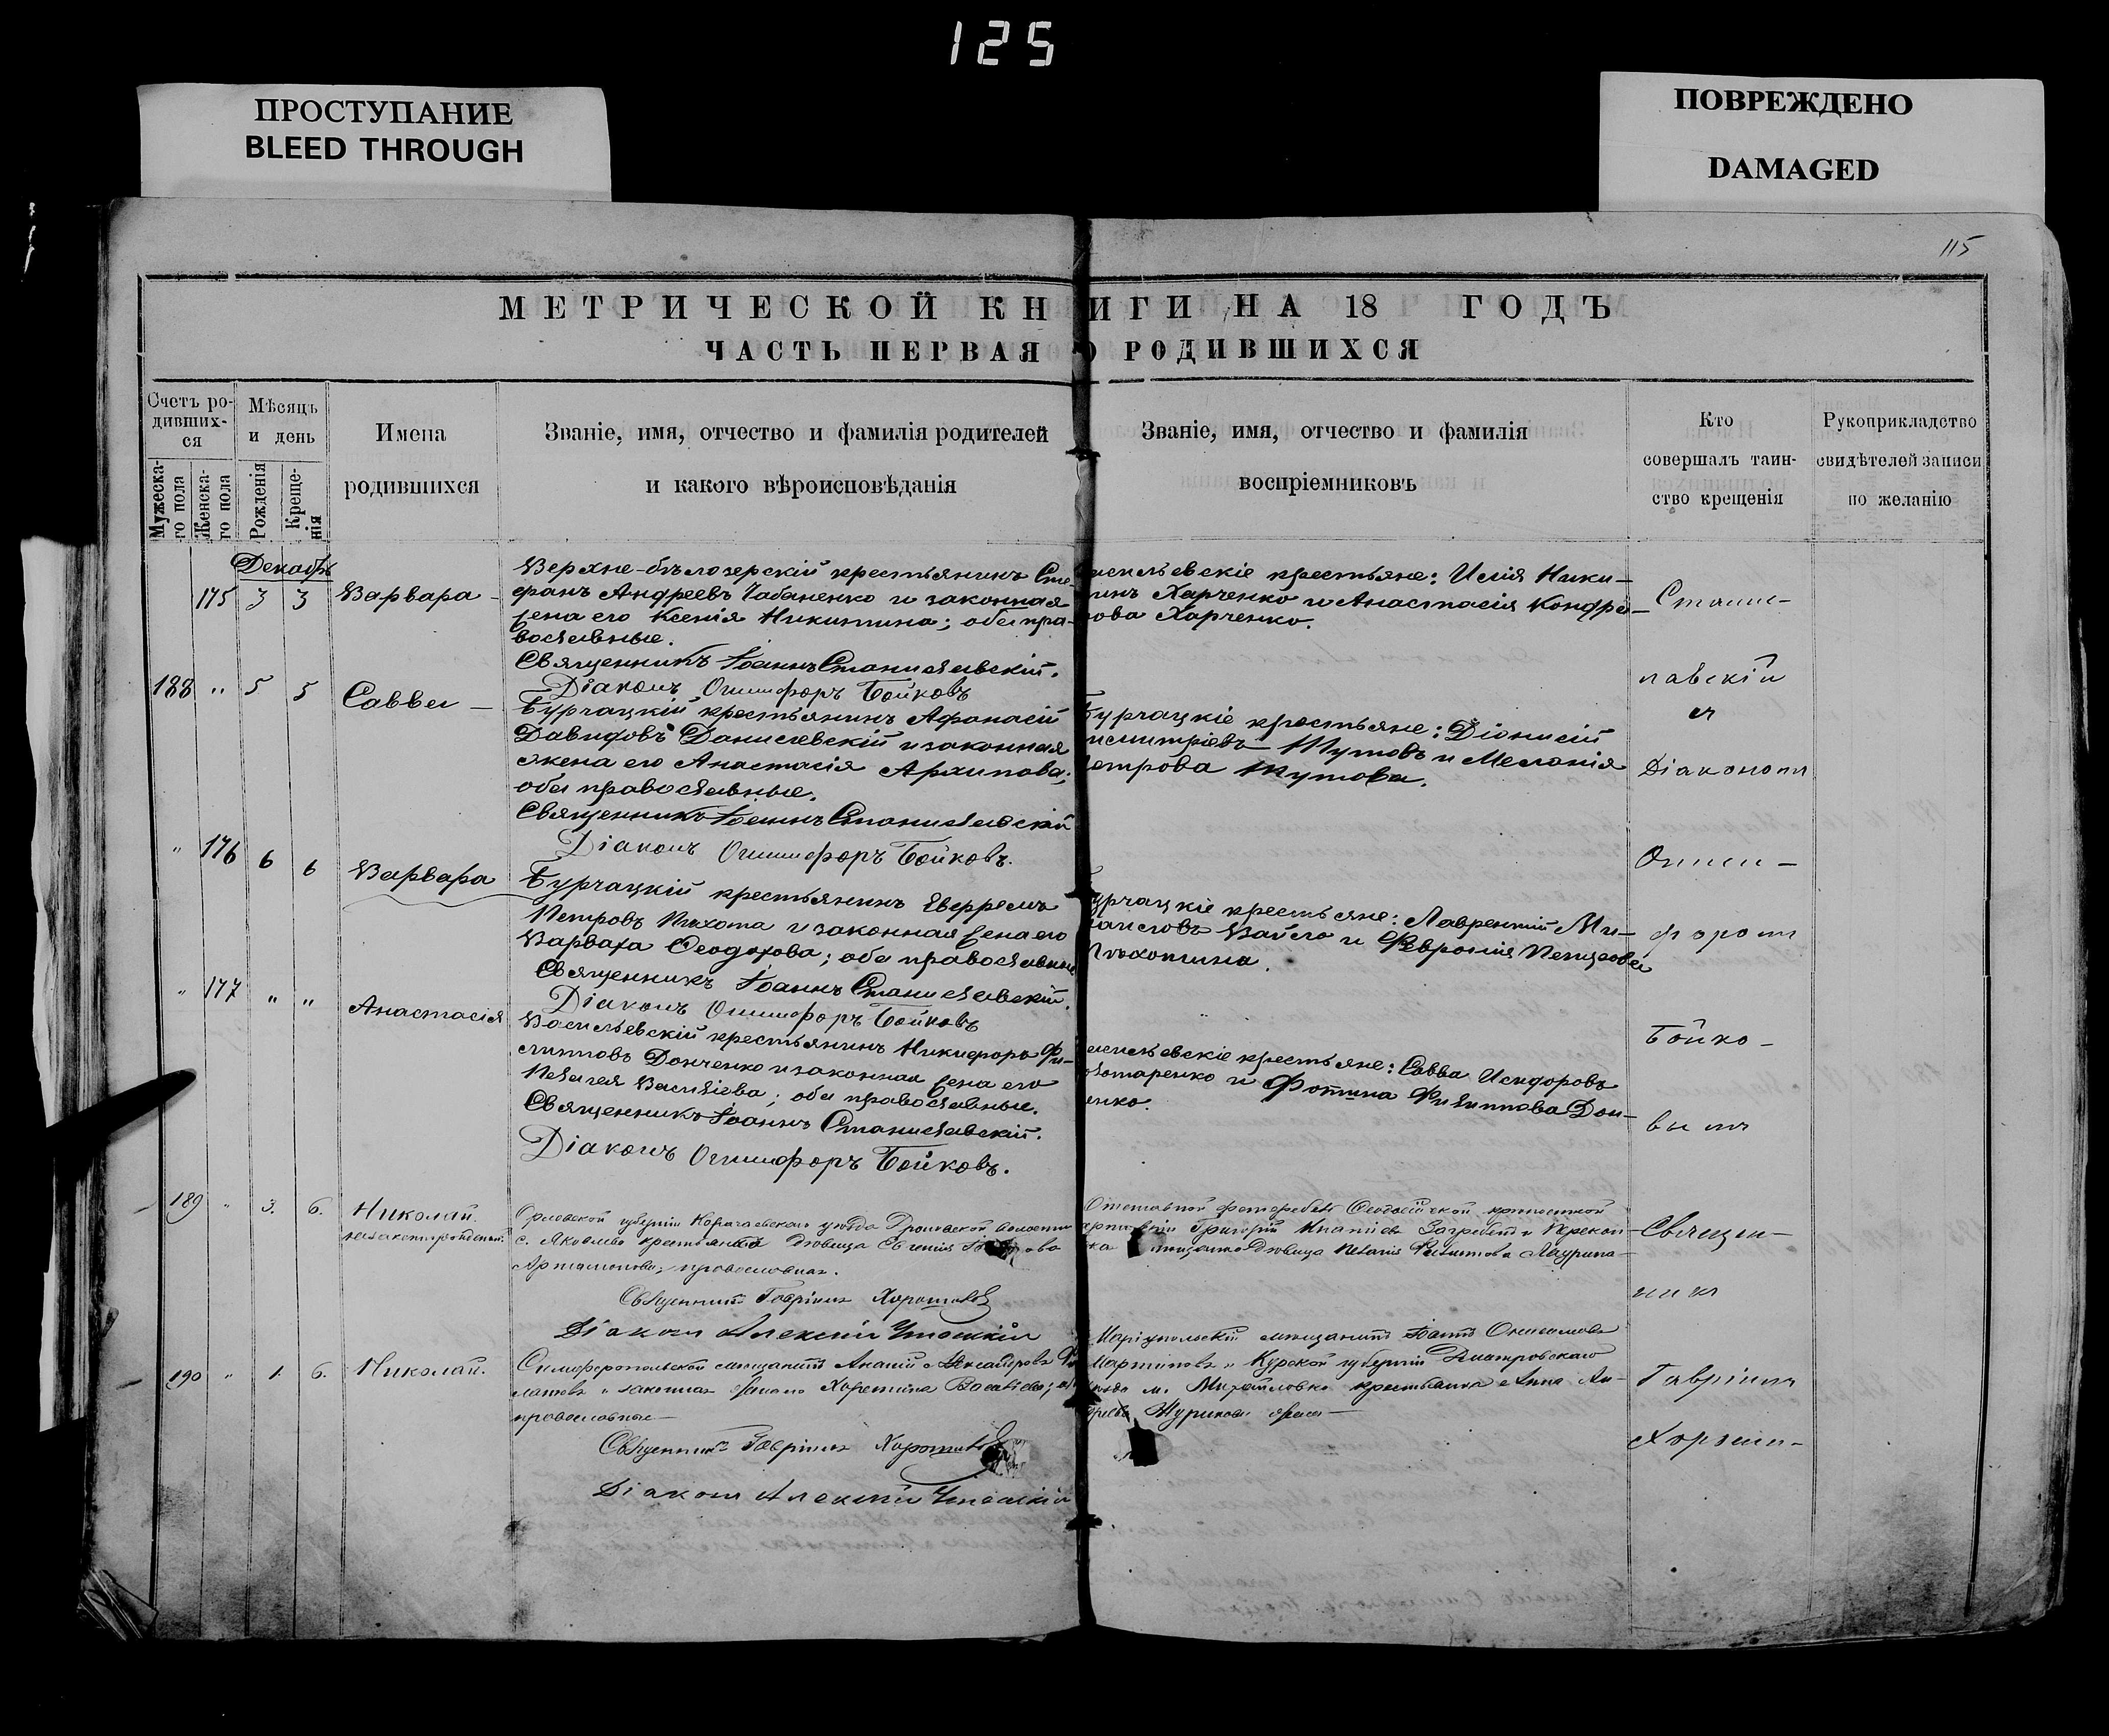 125
ПРОСТУПАНИЕ
BLEED THROUGH
ПОВРЕЖДЕНО
DAMAGED
115
МЕТРИЧЕСКОЙ КНИГИ НА 18 ГОДЪ
ЧАСТЬ ПЕРВАЯ О РОДИВШИХСЯ
Счетъ ро-
дивших-
ся
Мужеска-
го пола
Женска-
го пола
Мѣсяцъ
и день
Рожденія
Креще-
нія
Имена
родившихся
Званіе, имя, отчество и фамилія родителей
и какого вѣроисповѣданія
Званіе, имя, отчество и фамилія
воспріемниковъ
Кто
совершалъ таин-
ство крещенія
Рукоприкладство
свидѣтелей записи
по желанію
Декабрь
175 3 3 Варвара
Верхне-бѣлозерскій крестьянинъ Сте-
фанъ Андреевъ Чабаненко и законная
жена его Ксенія Никитина; оба пра-
вославные.
Священникъ Іоаннъ Станиславскій.
Діаконъ Онисифоръ Бойковъ
асильевскіе крестьяне: Илія Ники-
инъ Харченко и Анастасія Кондра-
ова Харченко.
188 " 5 5 Савва
Бурчацкій крестьянинъ Афанасій
Давидовъ Данилевскій и законная
жена его Анастасія Архипова;
оба православные.
Священникъ Іоаннъ Станиславскій
Діаконъ Онисифоръ Бойковъ.
Бурчацкіе крестьяне: Діонисій
имитріевъ Шутовъ и Меланія
етрова Шутова.
" 176 6 6 Варвара
Бурчацкій крестьянинъ Еверремъ
Петровъ Пѣхота и законная жена его
Варвара Ѳеодорова; оба православные
Священникъ Іоаннъ Станиславскій.
Діаконъ Онисифоръ Бойковъ
урчацкіе крестьяне: Лаврентій Ми-
аиловъ Вайло и Февронія
Пѣхотина.
" 177 " " Анастасія
Васильевскій крестьянинъ Никифоръ Фи-
липповъ Донченко и законная жена его
Пелагея Василіева; оба православные.
Священникъ Іоаннъ Станиславскій.
Діаконъ Онисифоръ Бойковъ.
асильевскіе крестьяне: Савва Исидоровъ
отаренко и Фотина Филиппова Дон-
енко.
Станис-
лавскій
съ
Діакономъ
Ониси-
форомъ
Бойко-
вымъ
189 " 3. 6. Николай.
незаконнорожденный.
Орловской губерніи Карачаевскаго уѣзда Дроновской волости
с. Яковлева крестьянка дѣвица Евгенія
Артамонова; православная.
Священникъ Гавріилъ
Діаконъ Алексій
Отставной Ѳеодосійской крѣпостной
Григорій Игнатіевъ
дѣвица Филиппова
190 " 1. 6. Николай.
Симферопольскій мѣщанинъ
и законная жена его Васильева;
православные
Священникъ Гавріилъ
Діаконъ Алексій
Маріупольскій мѣщанинъ Іоаннъ Онисимовъ
Мартыновъ и Курской губерніи Дмитровскаго
уѣзда м. Михайловки крестьянка Анна Ан-
Священ-
никъ
Гавріилъ